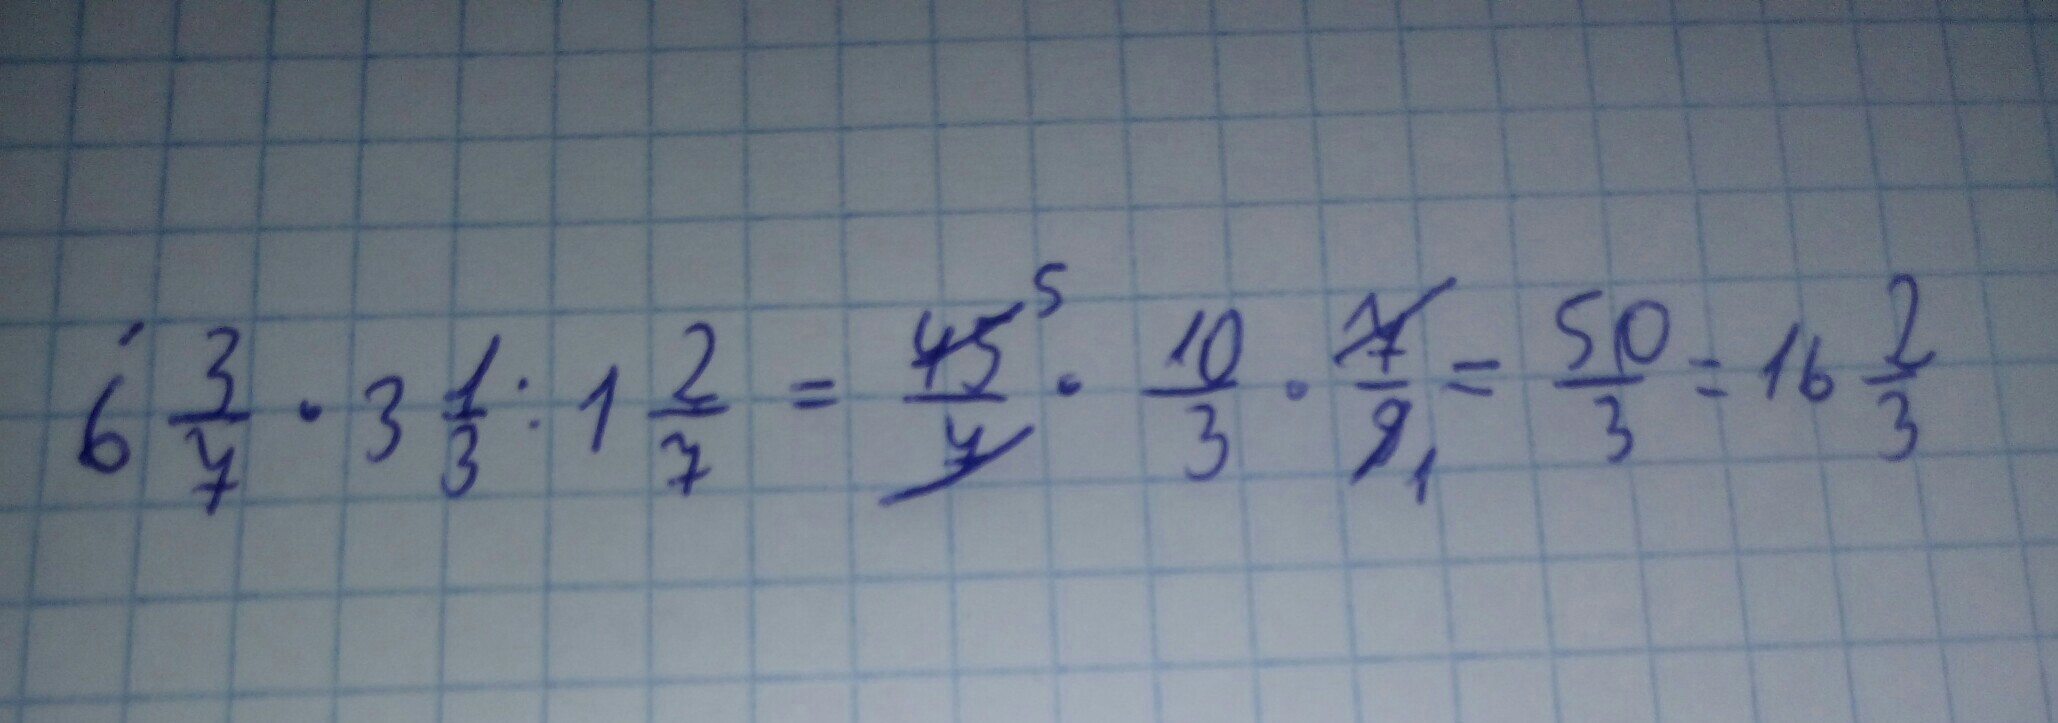 6 3/7 · 3 1/3 : 1 2/7 = 45 5/7 · 10/3 · 7/9 1 = 50/3 = 16 2/3